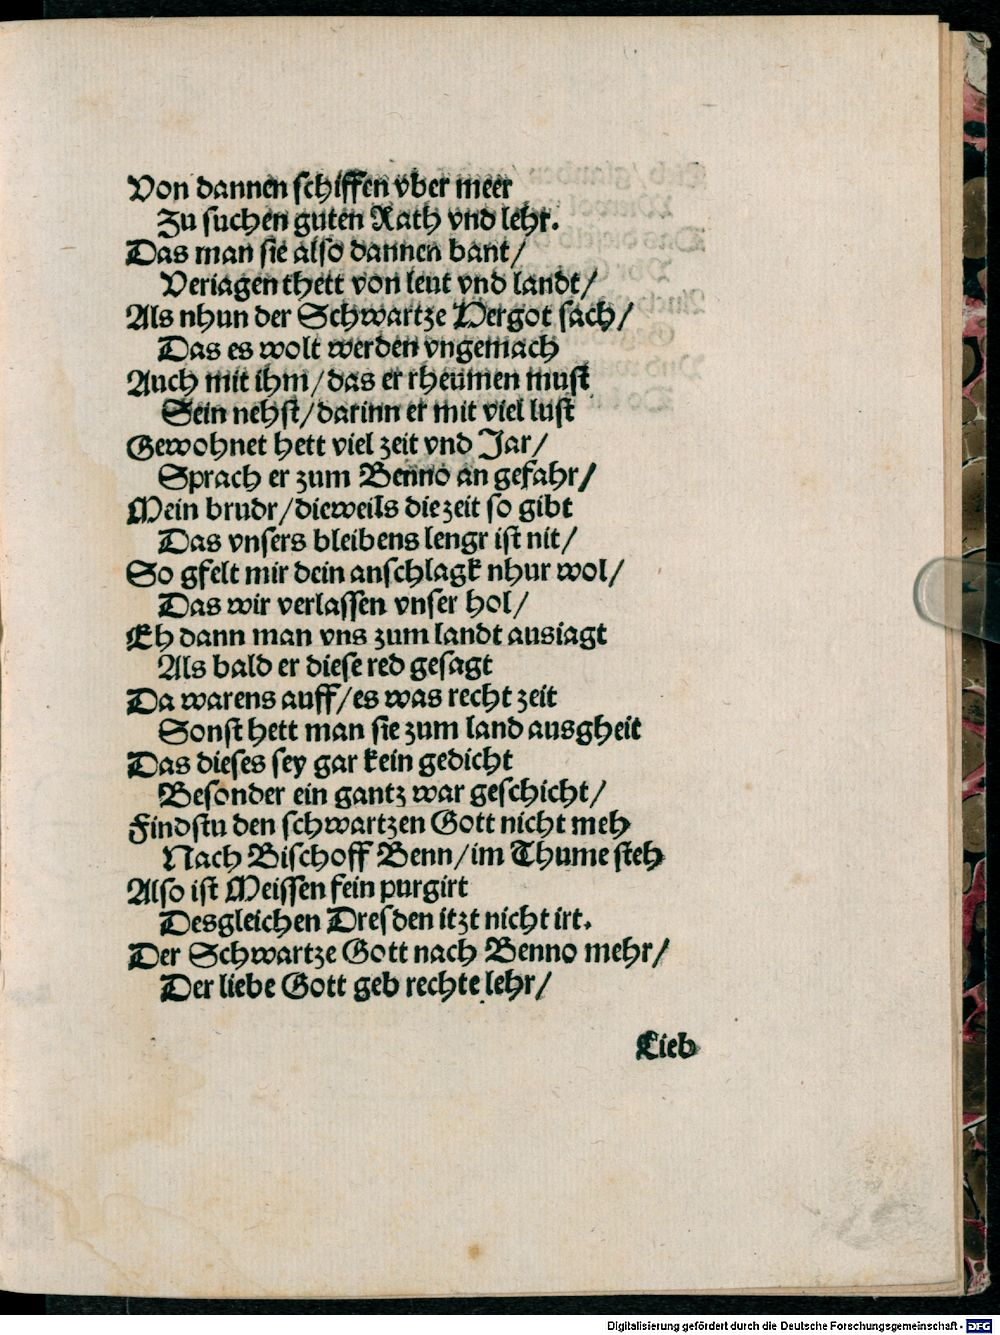 Von dannen schiffen vber meer
Zu suchen guten Rath vnd lehr.
Das man sie also dannen bant/
Veriagen thett von leut vnd landt/
Als nhun der Schwartze Hergot sach/
Das es wolt werden vngemach
Auch mit ihm/das er rheumen must
Sein nehst/darinn er mit viel lust
Gewohnet hett viel zeit vnd Jar/
Sprach er zum Benno an gefahr/
Mein brudr/dieweils die zeit so gibt
Das vnsers bleibens lengr ist nit/
So gfelt mir dein anschlagk nhur wol/
Das wir verlassen vnser hol/
Eh dann man vns zum landt ausiagt
Als bald er diese red gesagt
Da warens auff/es was recht zeit
Sonst hett man sie zum land ausgheit
Das dieses sey gar kein gedicht
Besonder ein gantz war geschicht/
Findstu den schwartzen Gott nicht meh
Nach Bischoff Benn/im Thume steh
Also ist Meissen fein purgirt
Desgleichen Dresden itzt nicht irt.
Der Schwartze Gott nach Benno mehr/
Der liebe Gott geb rechte lehr/
Lieb
Digitalisierung gefördert durch die Deutsche Forschungsgemeinschaft - DFG